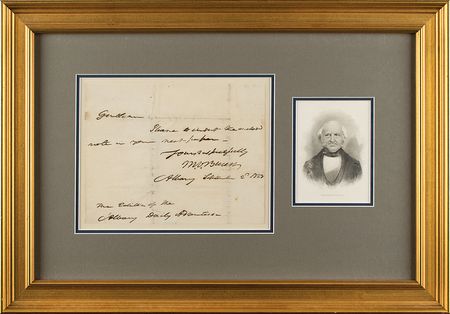 Gentlemen
Please to insert the enclosed
note in your next paper
Yours respectfully
M V Buren
Albany
The Editors of the
Albany Daily Advertiser